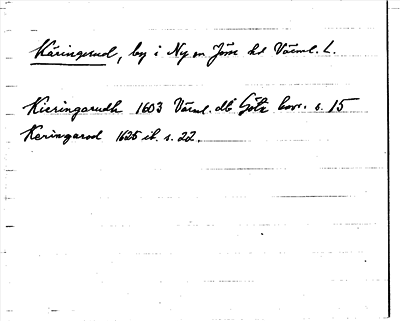 Käringerud, by i Ny sn Jösse hd Värml. L.
Kieringarudh 1603 Värml. db Göta hovr. s. 15
Keringarod 1625 ib. s. 22.